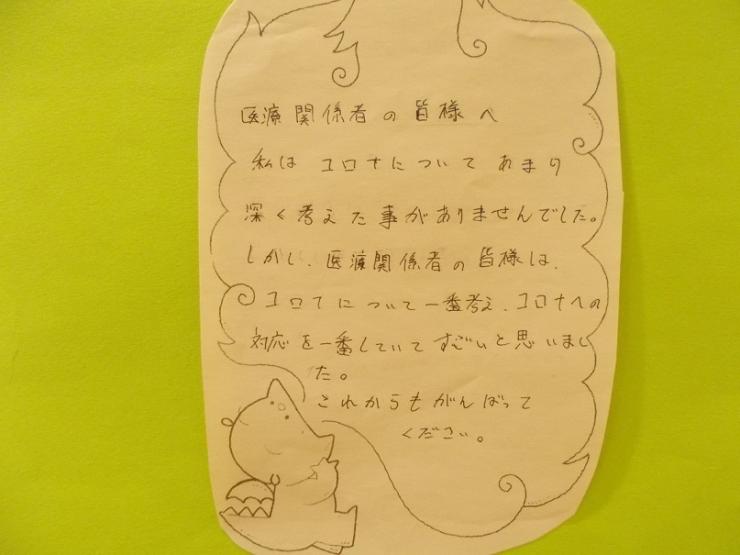 医療関係者の皆様へ
私はコロナについてあまり
深く考えた事がありませんでした。
しかし、医療関係者の皆様は、
コロナについて一番考え、コロナへの
対応を一番していてすごいと思いまし
た。
これからもがんばって
ください。